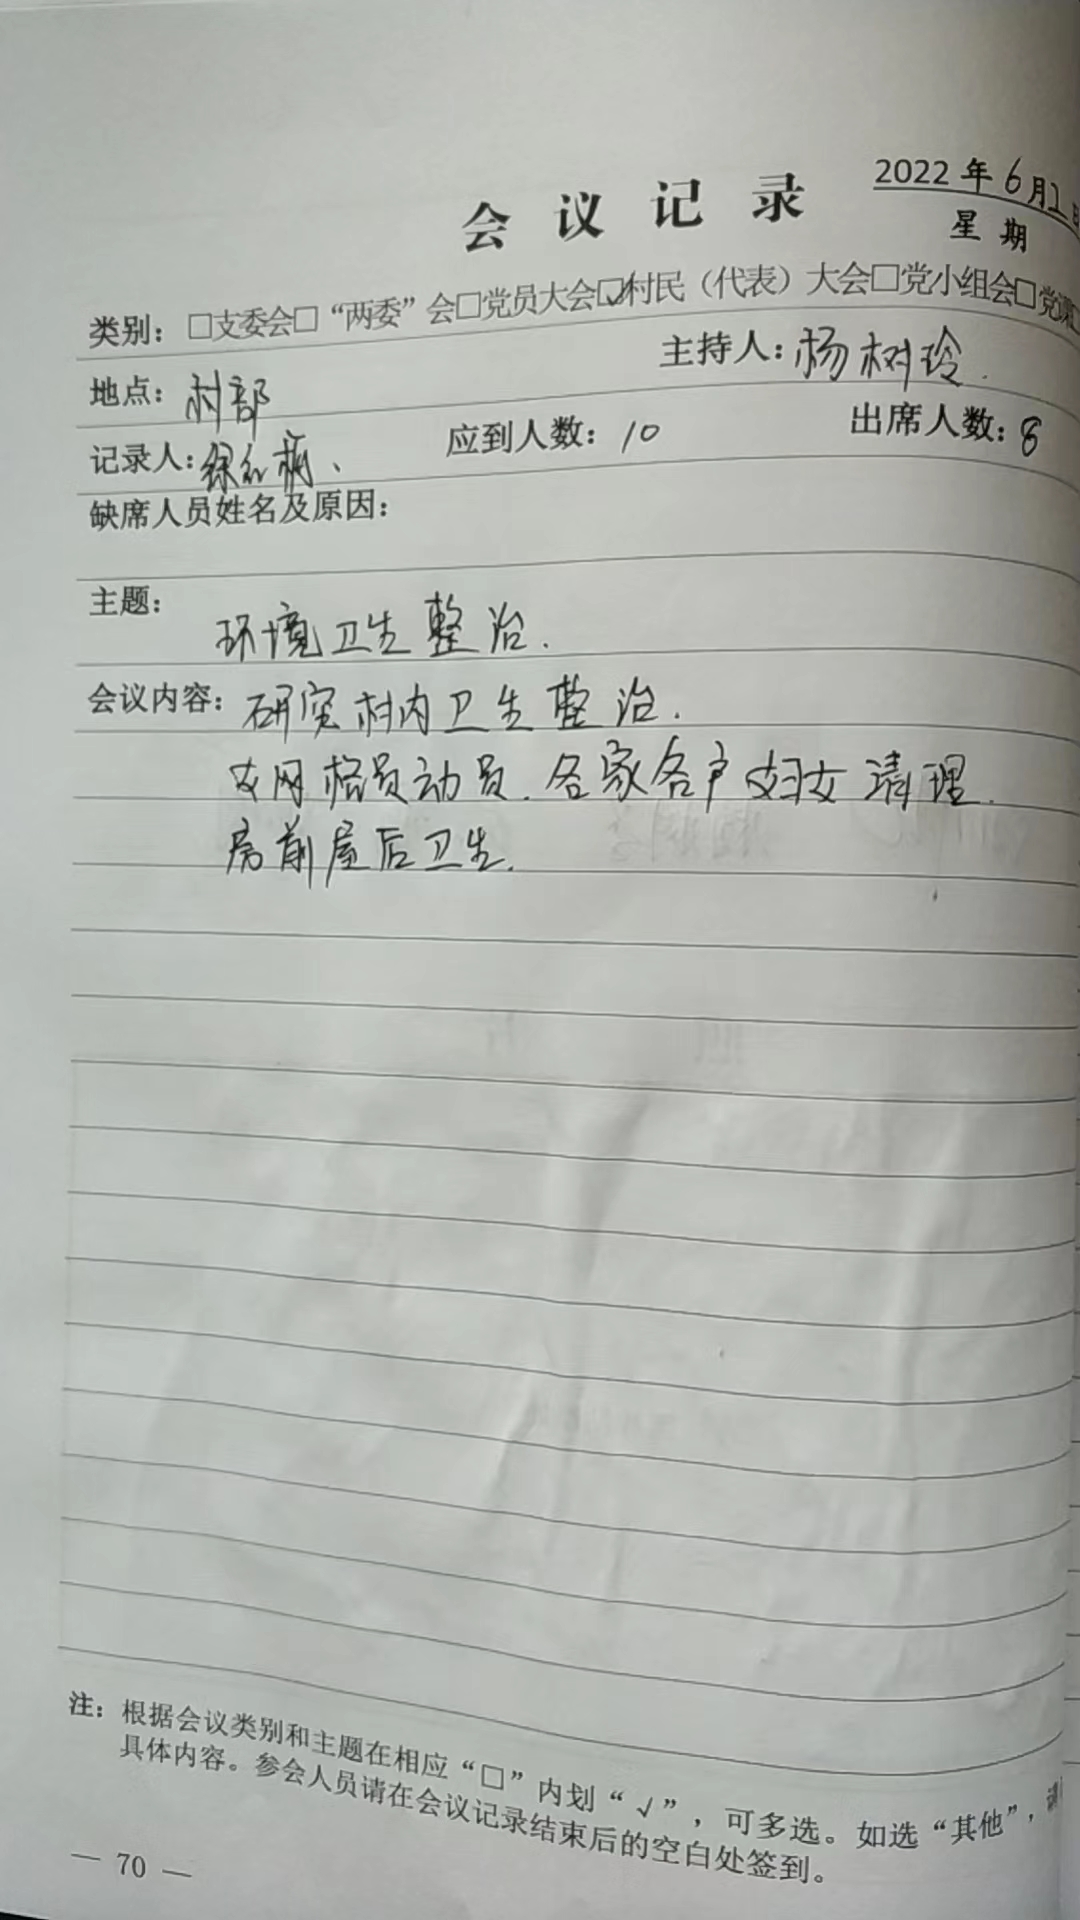 会议记录
2022年6月2日
星期
类别：□支委会□“两委”会□党员大会☑村民（代表）大会□党小组会□党课
地点：村部 主持人：杨树玲.
记录人：徐红梅、 应到人数：10 出席人数：8
缺席人员姓名及原因：
主题：
环境卫生整治.
会议内容：研究村内卫生整治.
由网格员动员.各家各户妇女清理.
房前屋后卫生.
注：根据会议类别和主题在相应“□”内划“√”，可多选。如选“其他”，
具体内容。参会人员请在会议记录结束后的空白处签到。
— 70 —